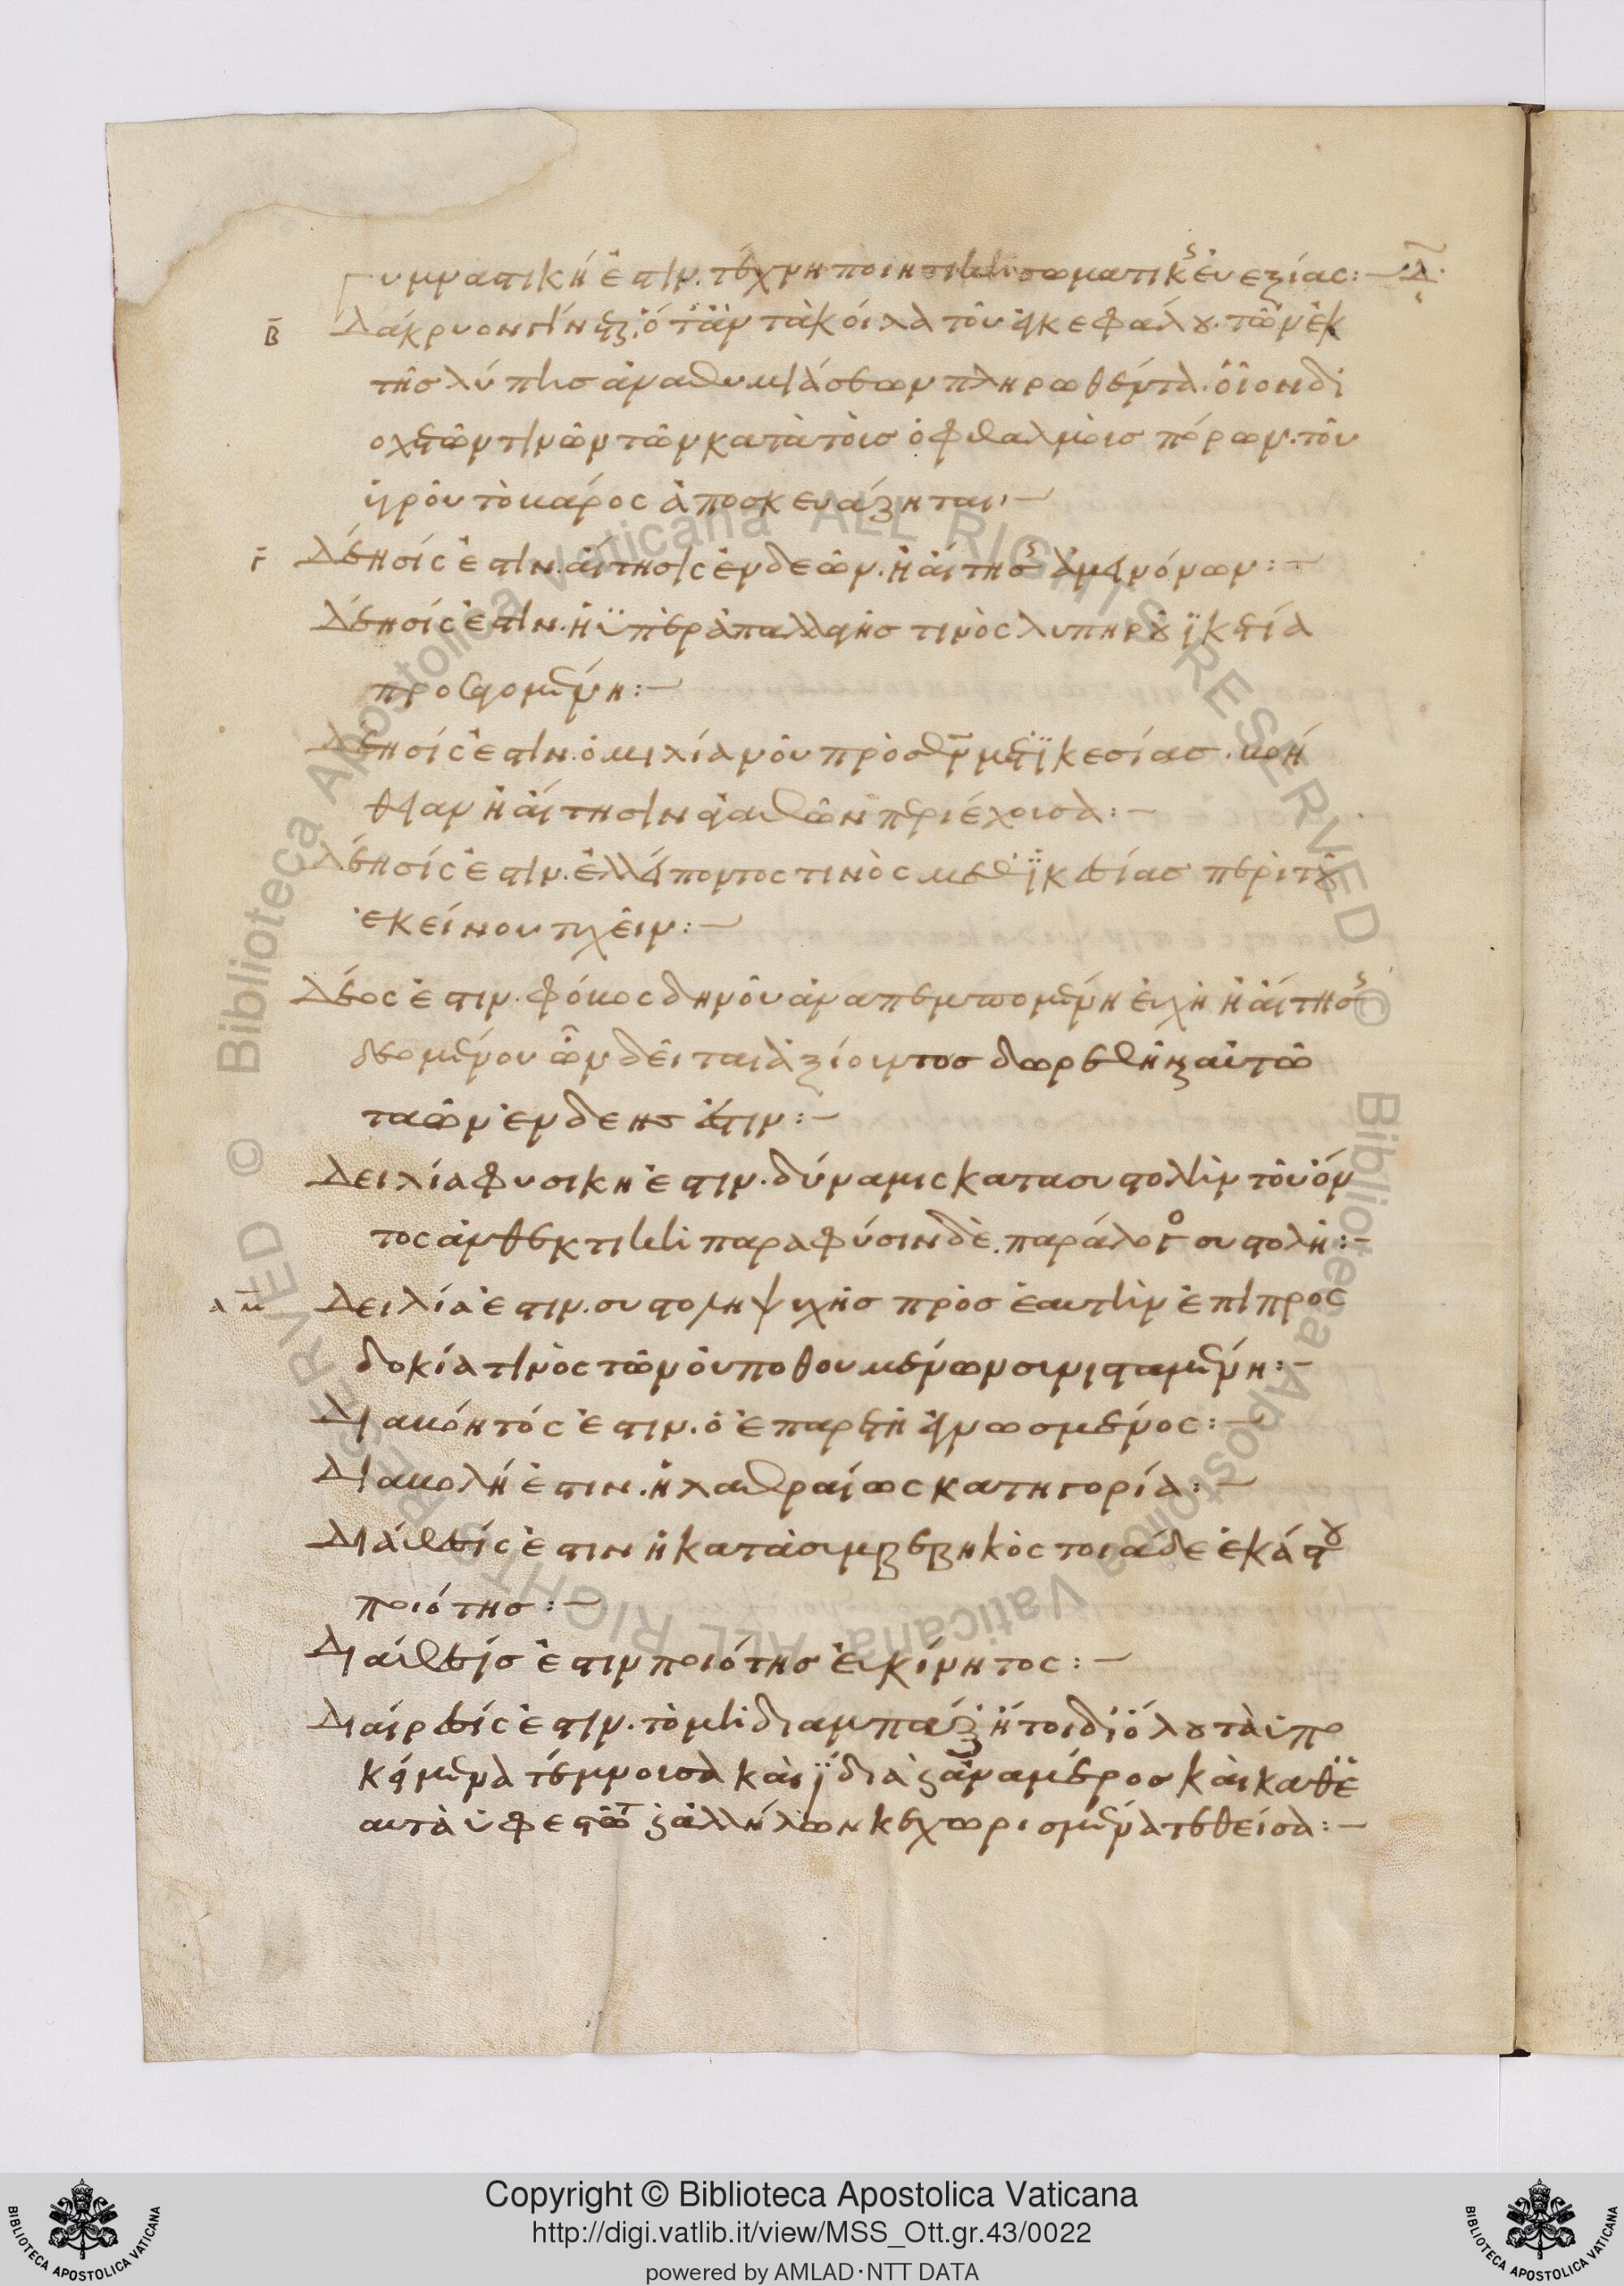 Γυμναστική ἐστιν. τέχνη ποιητικὴ σωματικῆς εὐεξίας:— Δ
Β Δάκρυον γίνεται, ὅταν τὰ κοῖλα τοῦ ἐγκεφάλου. τῶν ἐκ
τῆς λύπης ἀναθυμιάσεων πληρωθέντα. οἷον δι
οχετῶν τινῶν τῶν κατὰ τοῖς ὀφθαλμοῖς πόρων. τοῦ
ὑγροῦ τὸ βάρος ἀποσκευάζηται:—
Γ Δέησίς ἐστιν. αἴτησις ἐνδεῶν. ἢ αἴτησις ἀμεινόνων:—
Δέησίς ἐστιν. ἡ ὑπὲρ ἀπαλλαγῆς τινὸς λυπηροῦ ἱκετεία
προσαγομένη:—
Δέησίς ἐστιν. ὁμιλία νοῦ πρὸς θν μεθ ἱκεσίας. βοή
θειαν ἢ αἴτησιν ἀγαθῶν περιέχουσα:—
Δέησίς ἐστιν. ἐλλείποντος τινὸς μεθ ἱκεσίας περὶ τοῦ
ἐκείνου τυχεῖν:—
Δέος ἐστιν. φόβος δηνοῦ ἀναπεμπομένη εὐχὴ ἢ αἴτησις
δεομένου ὧν δεῖται ἀξιοῦντος δωρεθῆναι αὐτῶ
τα ὧν ἐνδεης ἐστιν:—
Δειλία φυσικη ἐστιν. δύναμις κατα συστολὴν τοῦ ὄν
τος ἀνθεκτικὴ παρα φύσιν δὲ. παράλογος συστολή:—
Δειλία ἐστιν. συστολη ψυχῆς πρὸς ἑαυτὴν ἐπι προς
δοκία τινὸς τῶν οὐ ποθουμένων συνισταμένη:—
Διαβόητός ἐστιν. ὁ ἐπ αρετῆ ἐγνωσμένος:—
Διαβολή ἐστιν. ἡ λαθραίως κατηγορία:—
Διάθεσίς ἐστιν ἡ κατὰ συμβεβηκὸς τοιάδε ἑκάστου
ποιότης:—
Διάθεσίς ἐστιν ποιότης εὐκίνητος:—
Διαίρεσίς ἐστιν. τομὴ διαμπὰξ ἤτοι δι ὅλου τὰ ὑπο
κείμενα τέμνουσα καὶ ἰδία ἀναμέρος καὶ καθ ἑ
αυτὰ ὑφεστῶτα ἀλλήλων κεχωρισμένα τεθείσα:—
Copyright © Biblioteca Apostolica Vaticana
http://digi.vatlib.it/view/MSS_Ott.gr.43/0022
powered by AMLAD·NTT DATA